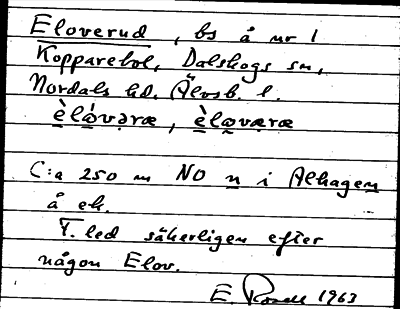 Eloverud, bs å nr 1
Kopparebol, Dalskogs sn,
Nordals hd. Älvsb. l.
è̱ló̱vəræ, è̱lo̱væræ
C:a 250 m NO n i Alhagen
å ek.
F. led säkerligen efter
någon Elov.
E. Rosell 1963